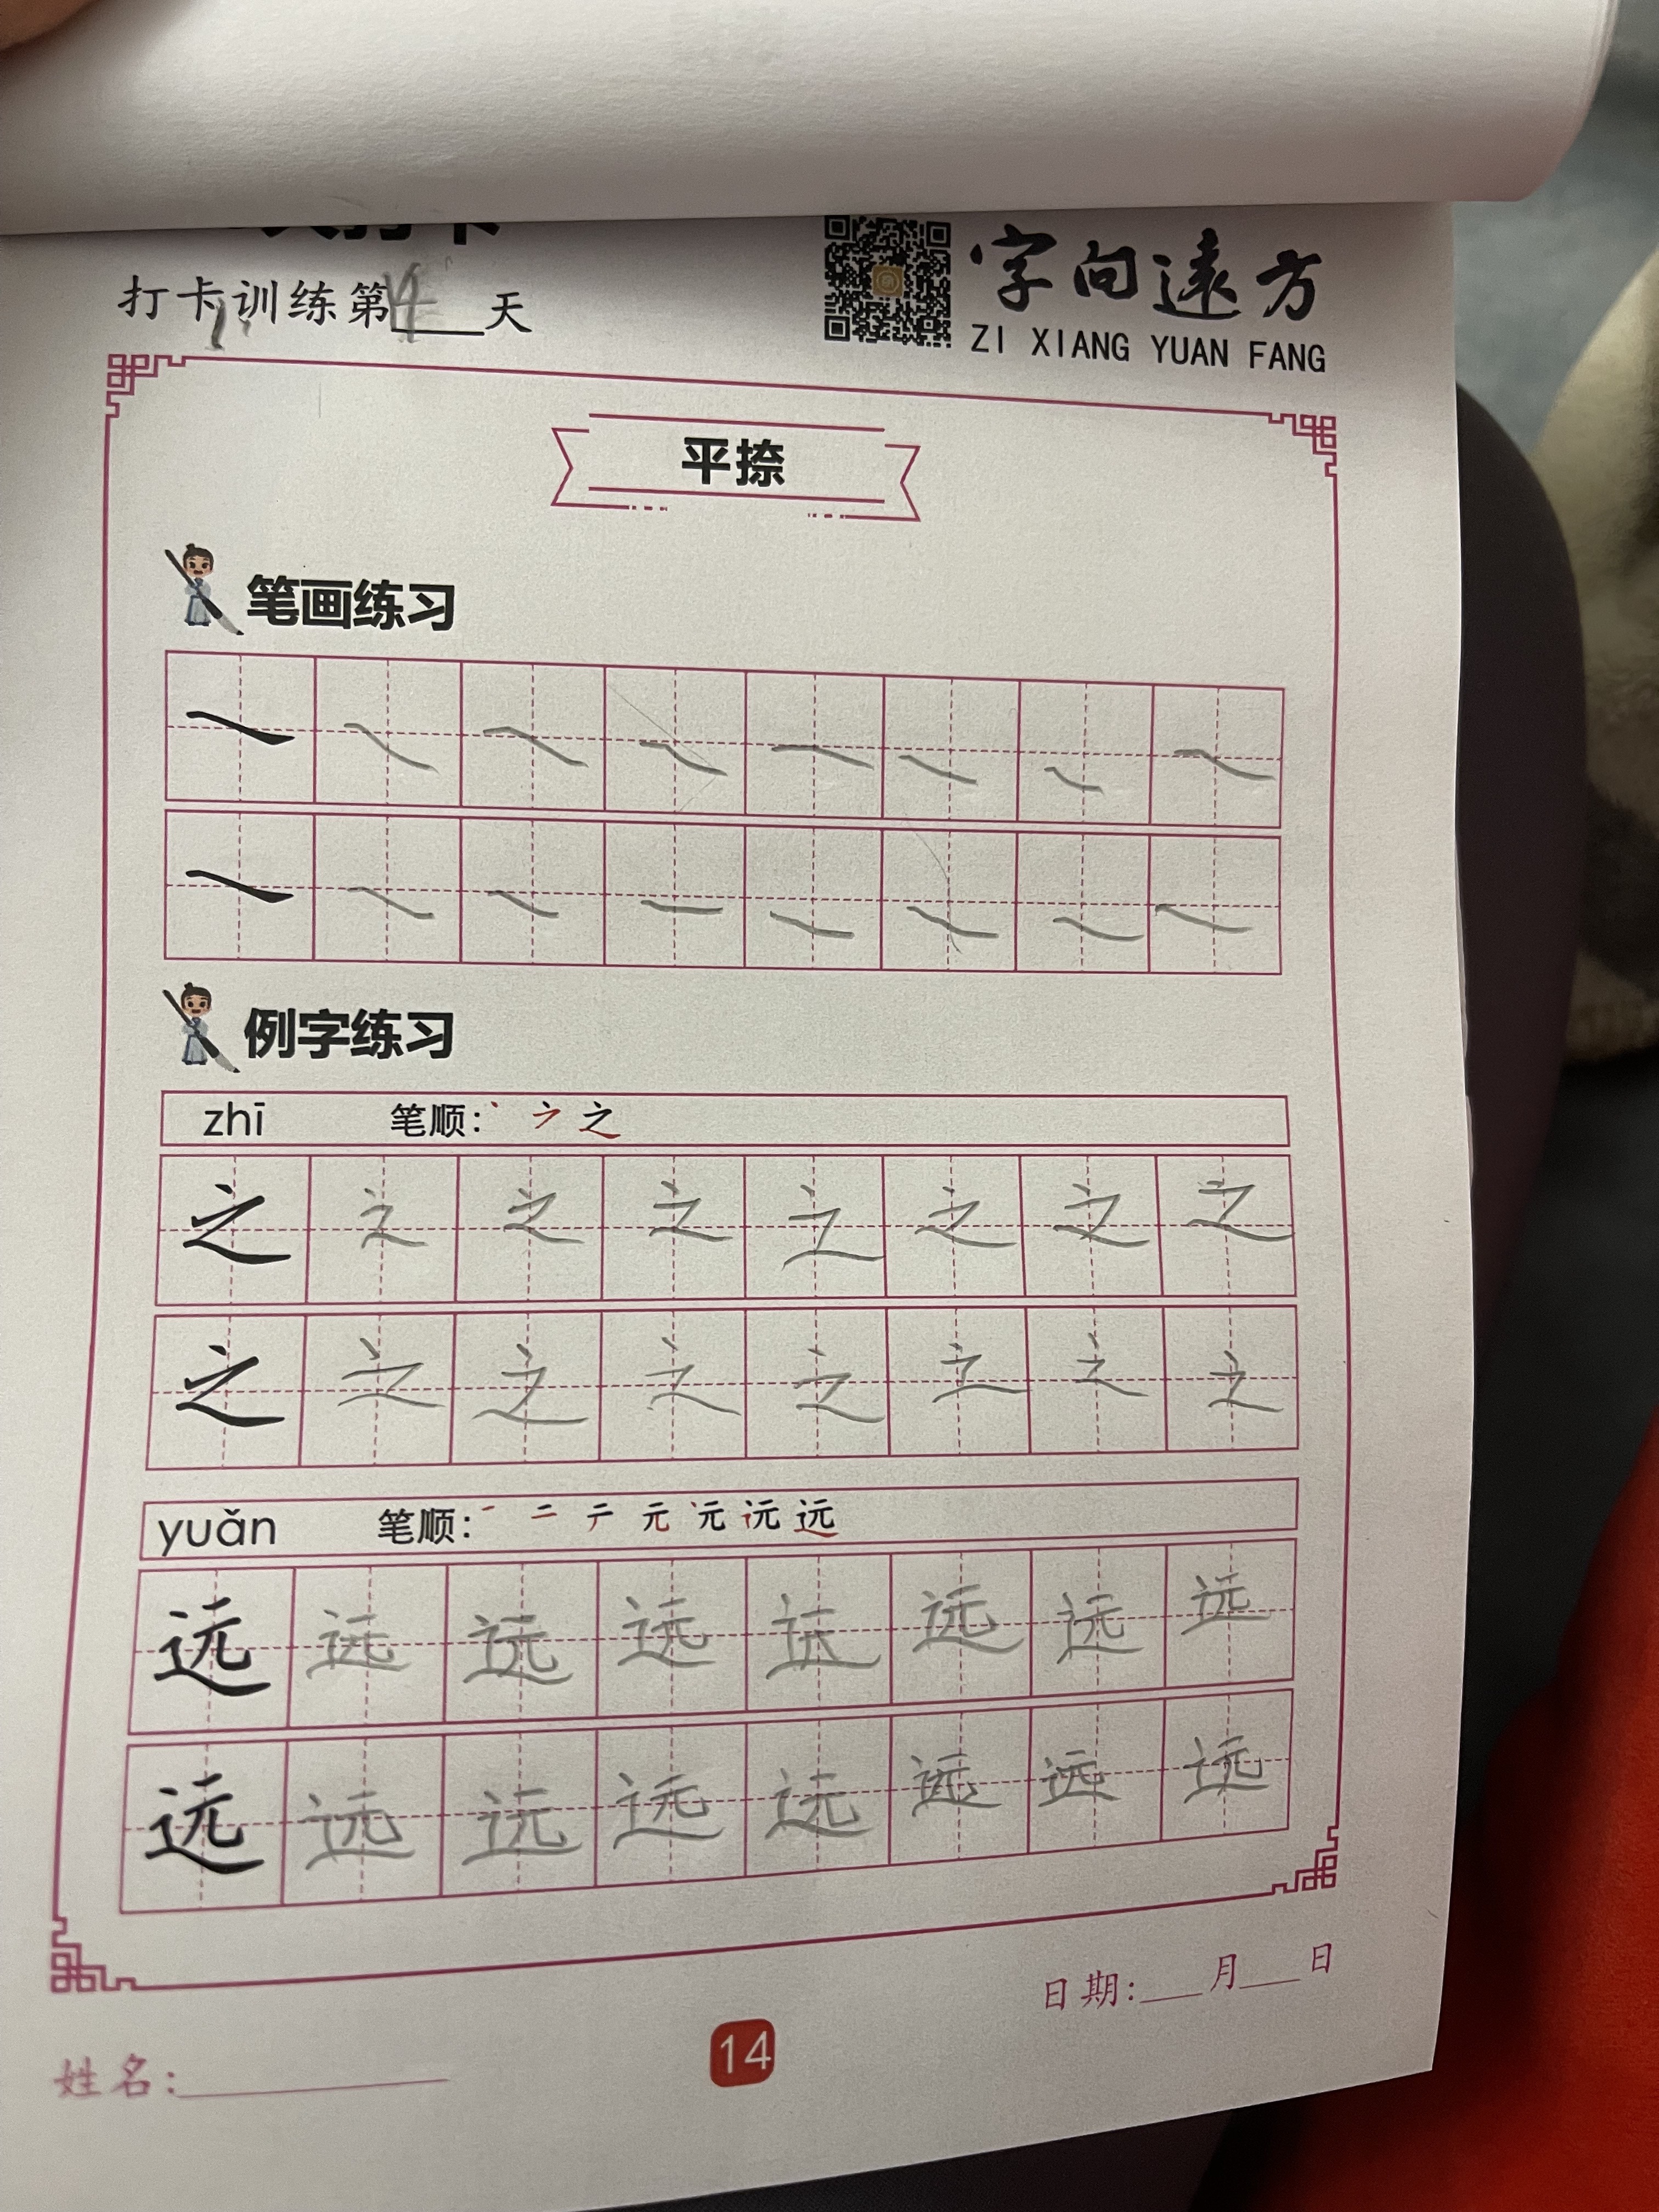 打卡训练第14天
字向遠方
ZI XIANG YUAN FANG
平捺
笔画练习
例字练习
zhī 笔顺: 之
之 之 之 之 之 之 之 之
之 之 之 之 之 之 之 之
yuǎn 笔顺: 一 二 元 元 远
远 远 远 远 远 远 远 远
远 远 远 远 远 远 远 远
日期:___月___日
14
姓名: